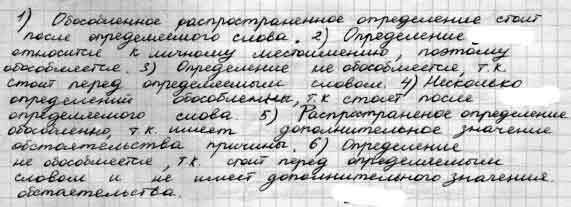 1) Обособленное распространенное определение стоит
после определяемого слова. 2) Определение
относится к личному местоимению, поэтому
обособляется. 3) Определение не обособляется, т.к.
стоит перед определяемым словом. 4) Несколько
определений обособленных, т.к стоят после
определяемого слова 5) Распространеное определение
обособленно, т.к. имеет дополнительное значение
обстоятельства причины. 6) Определение
не обособляется, т.к. стоит перед определяемым
словом и не имеет дополнительного значения
обстоятельства.